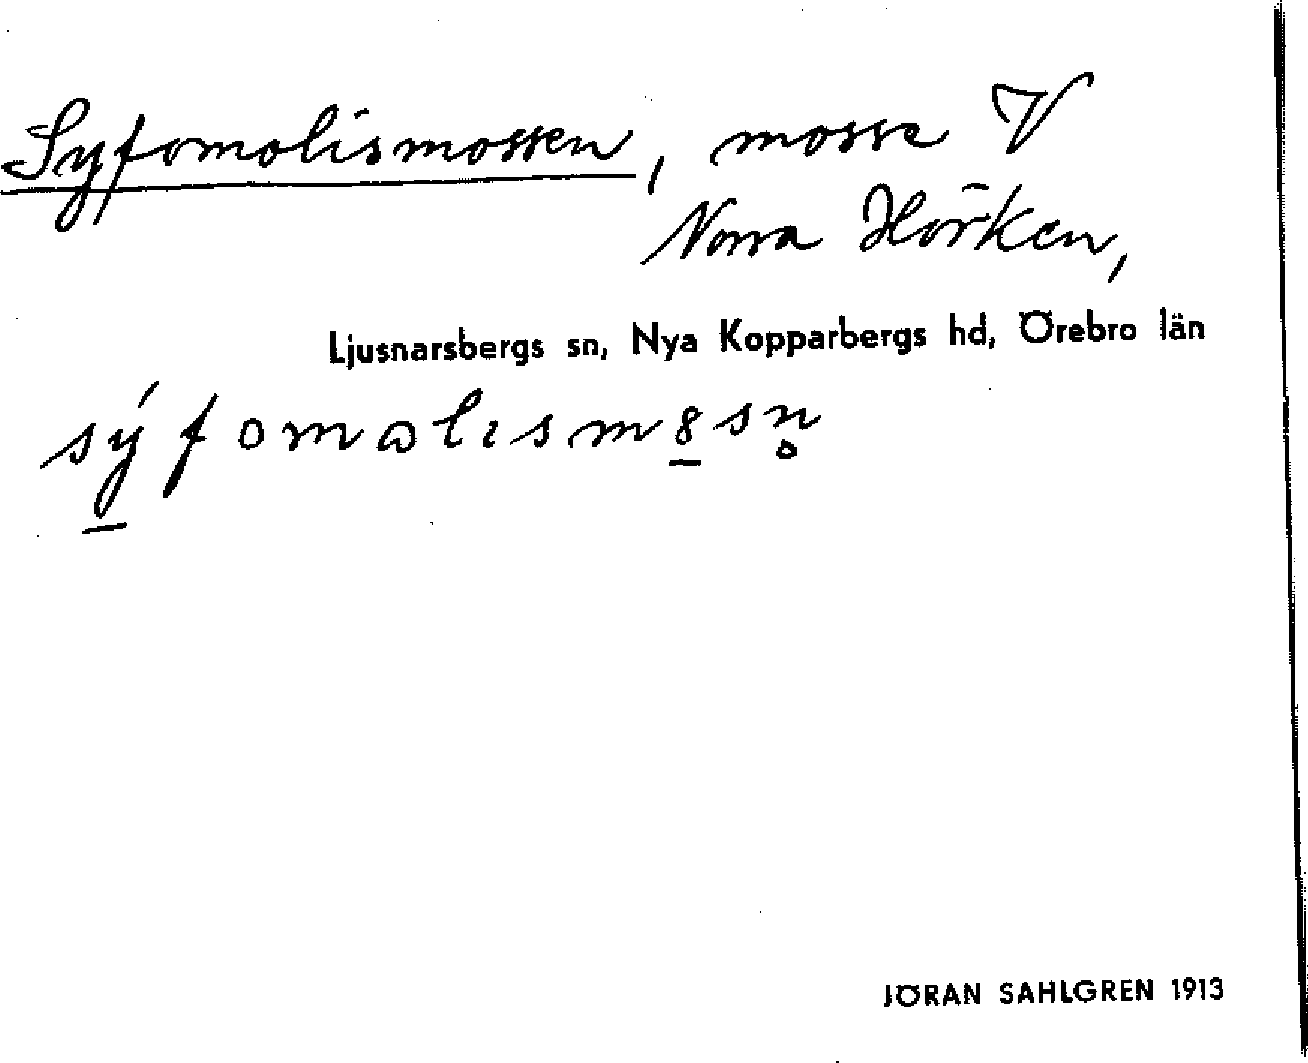 Syfomolismossen, mosse V
Norra Hörken,
Ljusnarsbergs sn, Nya Kopparbergs hd, Örebro län
sý̱fomωlısm8̱sn̥
JÖRAN SAHLGREN 1913